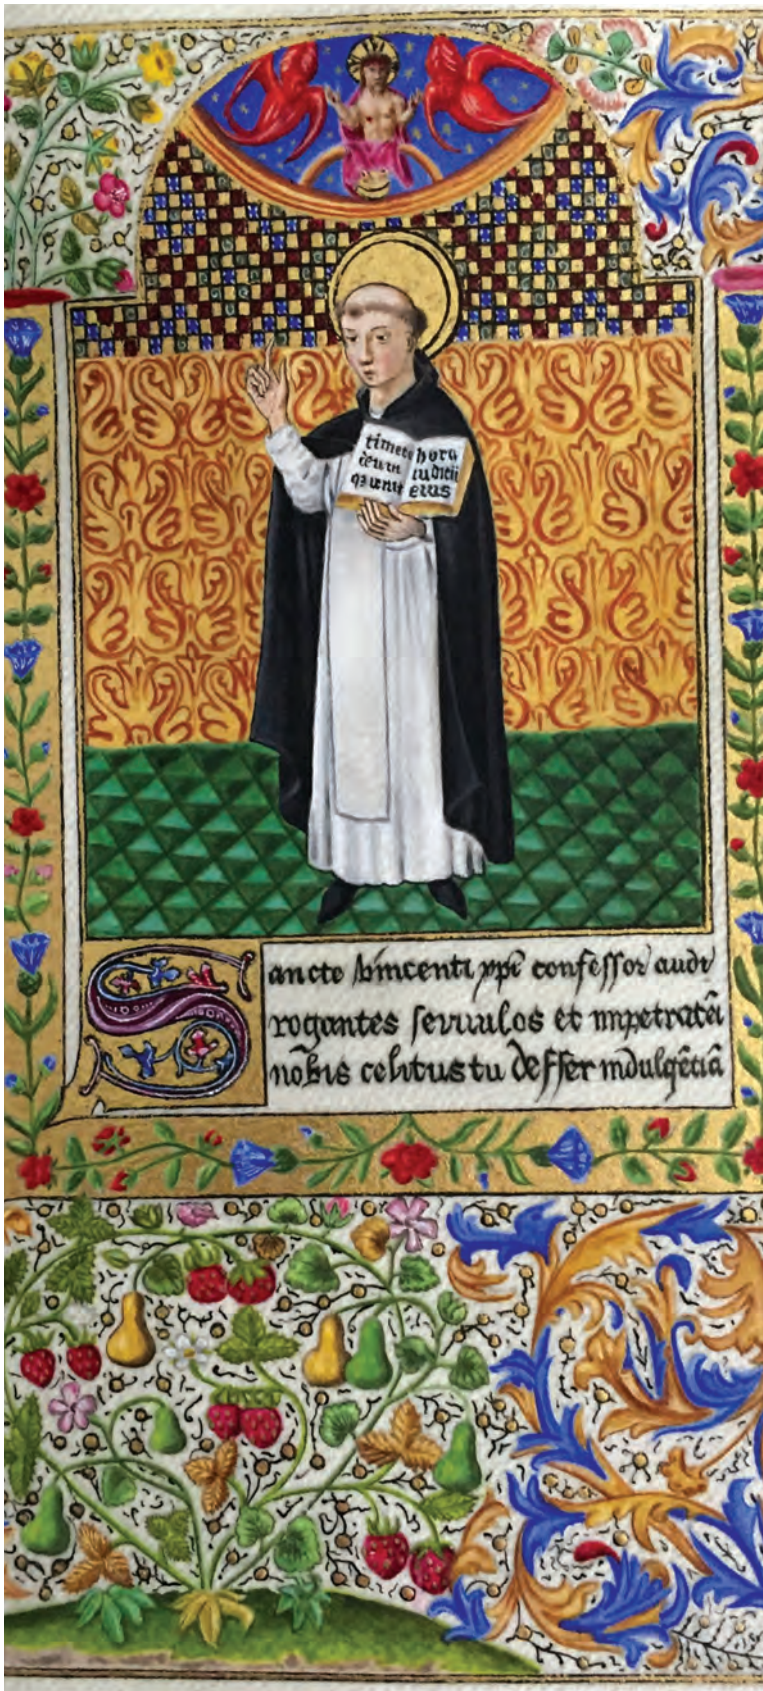 timete
deum
q̄a uenit
hora
iudicii
eius
Sancte vincenti xp̄i confessor audi
rogantes seruulos et impetratā
nōbis celitus tu deffer īndulgētiā